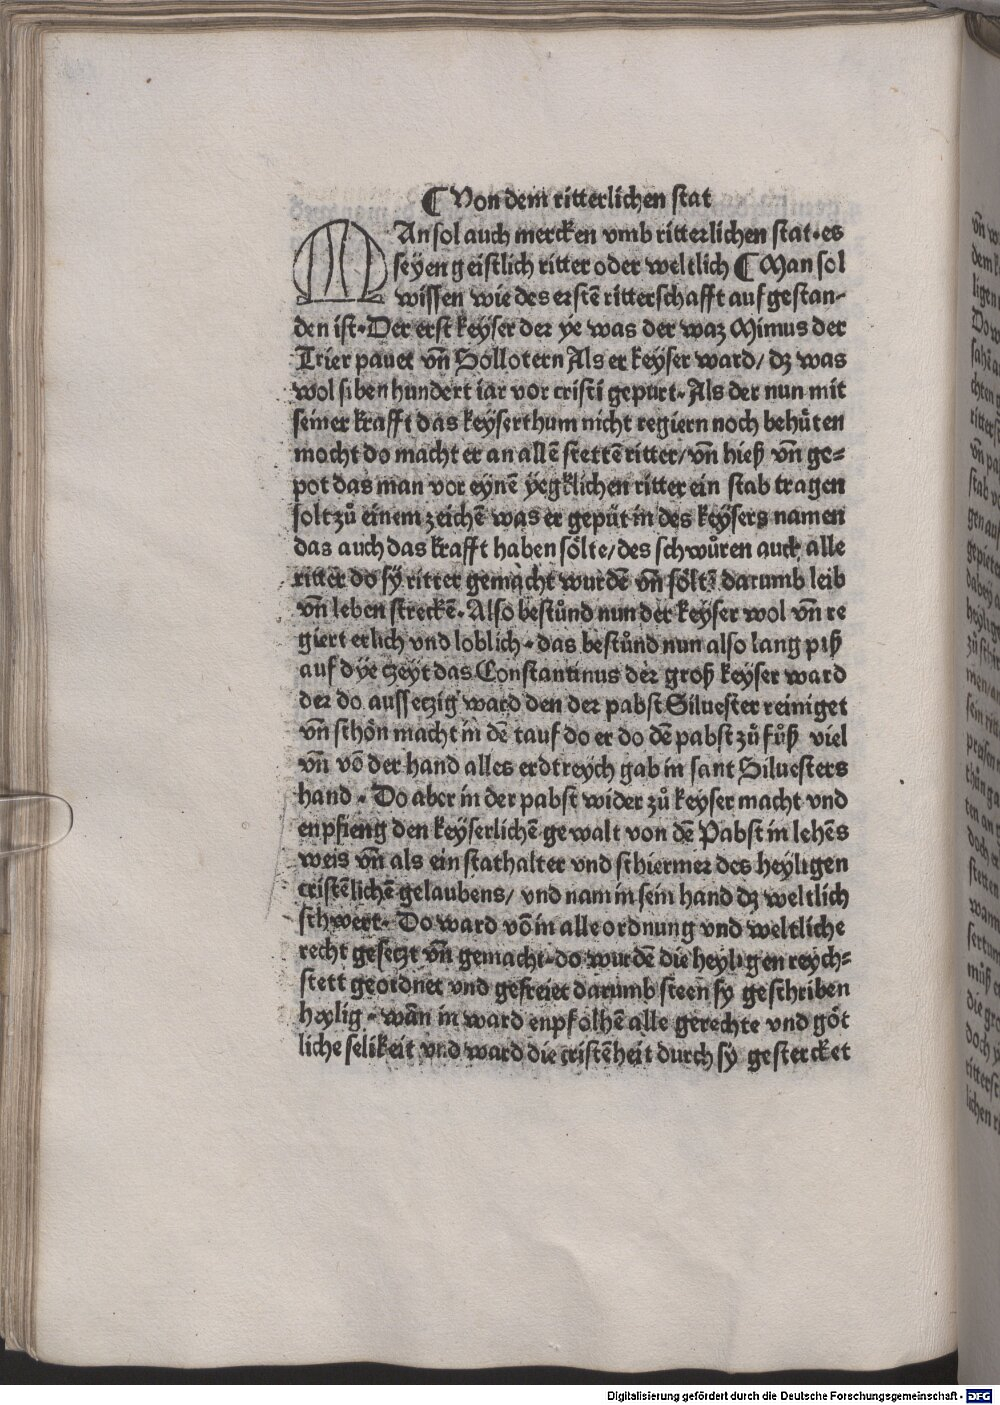 ¶ Von dem ritterlichen stat
MAn sol auch mercken vmb ritterlichen stat·es
seyen geistlich ritter oder weltlich ¶ Man sol
wissen wie des erstē ritterschafft auf gestan-
den ist·Der erst keyser der ye was der waz Minus der
Trier pauet vn̄ Sollotern Als er keyser ward/ dz was
wol siben hundert iar vor cristi gepurt·Als der nun mit
seiner krafft das keyserthum nicht regiern noch behüten
mocht do macht er an allē stettē ritter/vn̄ hieß vn̄ ge-
pot das man vor eynē yegklichen ritter ein stab tragen
solt zů einem zeichē was er gepüt in des keysers namen
das auch das krafft haben sölte/des schwůren auch alle
ritter do sy ritter gemacht wurdē vn̄ sölt darumb leib
vn̄ leben streckē·Also bestůnd nun der keyser wol vn̄ re
giert erlich vnd loblich·das bestůnd nun also lang piß
auf dye czeyt das Constantinus der groß keyser ward
der do aussetzig ward den der pabst Siluester reiniget
vn̄ schön macht in dē tauf do er do dē pabst zů fůß viel
vn̄ vō der hand alles erdtreych gab in sant Siluesters
hand·Do aber in der pabst wider zů keyser macht vnd
enpfieng den keyserlichē gewalt von dē Pabst in lehēs
weis vn̄ als ein stathalter vnd schiermer des heyligen
cristēlichē gelaubens/ vnd nam in sein hand dz weltlich
schwert·Do ward vō in alle ordnung vnd weltliche
recht gesetzt vn̄ gemacht·do wurdē die heyligen reych-
stett geordnet vnd gefreiet darumb steen sy geschriben
heylig·wān in ward enpfolhē alle gerechte vnd göt
liche selikeit vnd ward die cristēheit durch sy gestercket
Digitalisierung gefördert durch die Deutsche Forschungsgemeinschaft - DFG